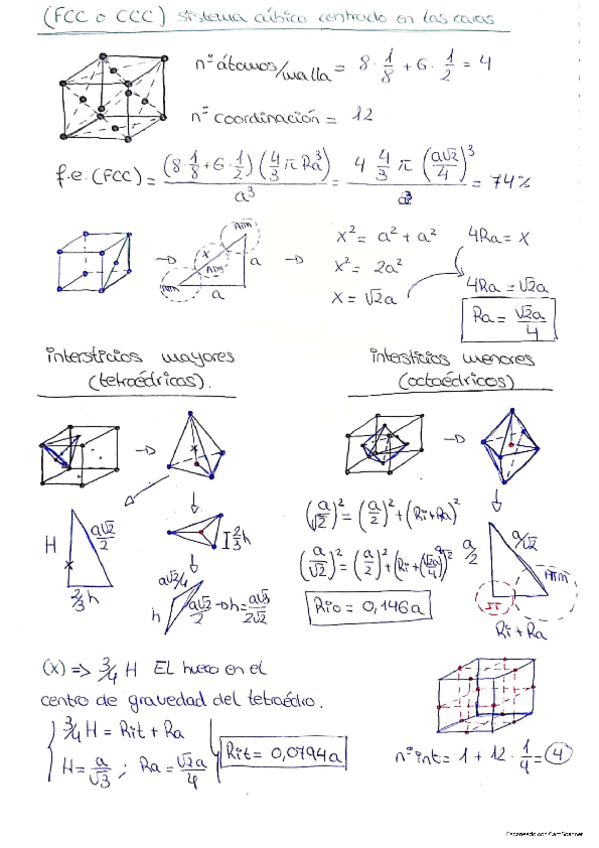 (FCC o CCC) sistema cúbico centrado en las caras
nº átomos/malla = 8 · 1/8 + 6 · 1/2 = 4
nº coordinación = 12
f.e. (FCC) = (8·1/8+6·1/2)(4/3 π Ra³) / a³ = 4 4/3 π (a√2/4)³ / a³ = 74%
x² = a² + a²
4Ra = x
x² = 2a²
x = √2a
4Ra = √2a
Ra = √2a/4
Atm
x
Atm
Atm
a
a
intersticios mayores
(tetraédricos).
intersticios menores
(octaédricos)
x
H
a√2/2
x
2/3 h
2/3 h
a√2/4
h
a√2/2 → h = a√3/2√2
(a/√2)² = (a/2)² + (Ri+Ra)²
(a/√2)² = (a/2)² + (Ri + (√2a/4))²
Rio = 0,146a
a/2
a/√2
Atm
Ri + Ra
(x) => 3/4 H El hueco en el
centro de gravedad del tetraédro.
3/4 H = Rit + Ra
H = a/√3 ; Ra = √2a/4
Rit = 0,0794a
nº int = 1 + 12 · 1/4 = 4
Escaneado con CamScanner